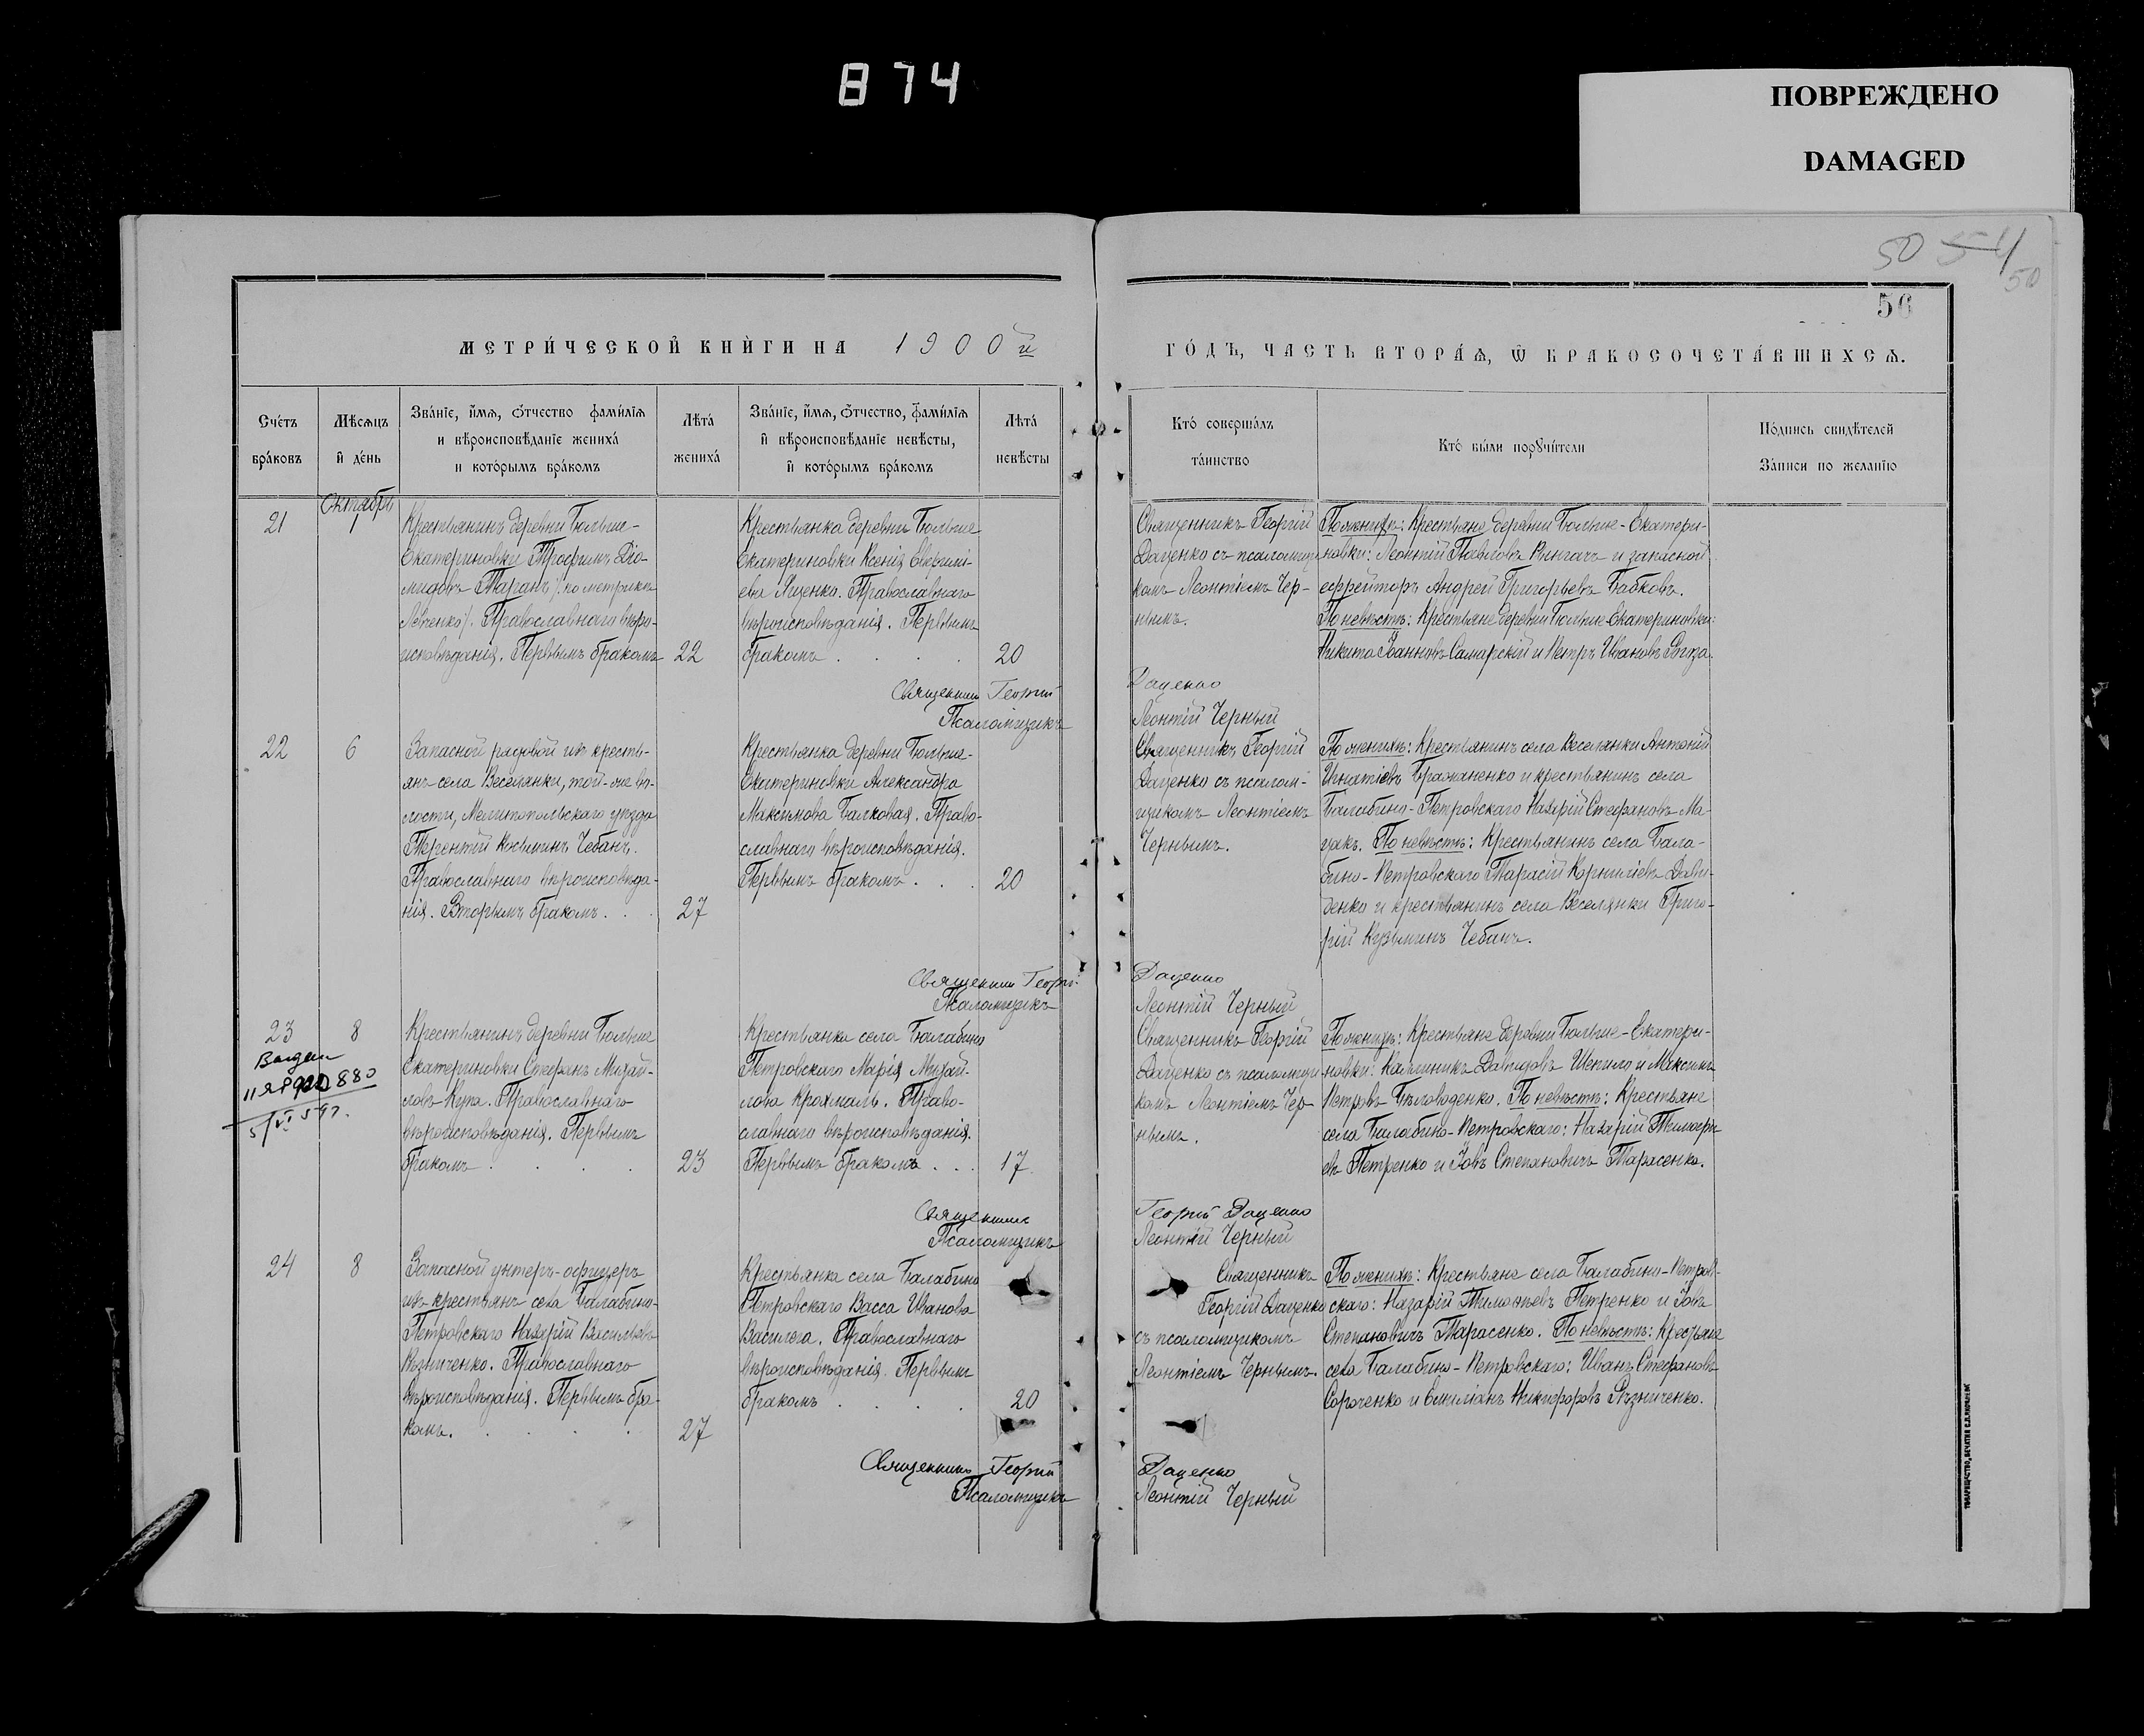 874
ПОВРЕЖДЕНО
DAMAGED
50 54
50
56
МЕТРИ́ЧЕСКОЙ КНИ́ГИ НА 1900й
ГО́ДЪ, ЧАСТЬ ВТОРА́Ѧ, Ѿ БРАКОСОЧЕТА́ВШИХСѦ.
Сче́тъ
бра́ковъ
Мѣ́сѧцъ
и҆ де́нь
Зва́нїе, и҆́мѧ, ѻ҆́тчество фами́лїѧ
и вѣроисповѣ́данїе жениха́
и кото́рымъ бра́комъ
Лѣта́
жениха́
Зва́нїе, и҆́мѧ, ѻ҆́тчество, фами́лїѧ
и҆ вѣроисповѣ́данїе невѣ́сты,
и҆ кото́рымъ бра́комъ
Лѣта́
невѣ́сты
Кто́ соверша́лъ
та́инство
Кто́ бы́ли порꙋчи́тели
По́дпись свидѣ́телей
За́писи по жела́нїю
Октябрь
21
1
Крестьянинъ деревни Больше-
Екатериновки Трофимъ Діо-
мидовъ Таранъ /: по метрикѣ
Левченко :/. Православнаго вѣро-
исповѣданія. Первымъ бракомъ
22
Крестьянка деревни Больше
Екатериновки Ксенія Евфимі-
ева Яценко. Православнаго
вѣроисповѣданія. Первымъ
бракомъ . . . .
20
Священникъ Георгій
Даценко съ псаломщи-
комъ Леонтіемъ Чер-
нымъ.
По женихѣ: Крестьяне деревни Больше-Екатери-
новки: Леонтій Павловъ и запасной
ефрейторъ Андрей Григорьевъ Бабковъ.
По невѣстѣ: Крестьяне деревни Больше-Екатериновки:
Никита Іоанновъ Самарскій и Петръ Ивановъ
Священникъ Георгій Даценко
Псаломщикъ Леонтій Черный
22
6
Запасной рядовой изъ кресть-
янъ села Веселянки, той-же во-
лости, Мелитопольскаго уѣзда
Терентій Косьминъ Чебанъ.
Православнаго вѣроисповѣда-
нія. Вторымъ бракомъ. . .
27
Крестьянка деревни Больше-
Екатериновки Александра
Максимова Балковая. Право-
славнаго вѣроисповѣданія.
Первымъ бракомъ. . .
20
Священникъ Георгій
Даценко съ псалом-
щикомъ Леонтіемъ
Чернымъ.
По женихѣ: Крестьянинъ села Веселянки Антоній
Игнатіевъ Бражаненко и крестьянинъ села
Балабино-Петровскаго Назарій Стефановъ Ма-
цакъ. По невѣстѣ: Крестьянинъ села Бала-
бино-Петровскаго Тарасій Корниліевъ Дави-
денко и крестьянинъ села Веселянки Григо-
рій Кузьминъ Чебанъ.
Священникъ Георгій Даценко
Псаломщикъ Леонтій Черный
23
8
Крестьянинъ деревни Больше
Екатериновки Стефанъ Михай-
ловъ Купа. Православнаго
вѣроисповѣданія. Первымъ
бракомъ . . . .
23
Крестьянка села Балабино
Петровскаго Марія Михай-
лова Крохмаль. Право-
славнаго вѣроисповѣданія.
Первымъ бракомъ . . .
17.
Священникъ Георгій
Даценко съ псаломщи-
комъ Леонтіемъ Чер-
нымъ.
По женихѣ: Крестьяне деревни Больше-Екатери-
новки: Калиникъ Давидовъ Шепило и Максимъ
Петровъ Бѣловоденко. По невѣстѣ: Крестьяне
села Балабино-Петровскаго: Назарій Тимофе-
евъ Петренко и Іовъ Степановичъ Тарасенко.
Священникъ Георгій Даценко
Псаломщикъ Леонтій Черный
24
8
Запасной унтеръ-офицеръ
изъ крестьянъ села Балабино-
Петровскаго Назарій Васильевъ
Рѣзниченко. Православнаго
вѣроисповѣданія. Первымъ бра-
комъ. . . . .
27
Крестьянка села Балабино
Петровскаго Васса Иванова
Василега. Православнаго
вѣроисповѣданія. Первым
бракомъ . . . .
20
Священникъ
Георгій Даценко
съ псаломщикомъ
Леонтіемъ Чернымъ.
По женихѣ: Крестьяне села Балабино-Петров-
скаго: Назарій Тимофѣевъ Петренко и Іовъ
Степановичъ Тарасенко. По невѣстѣ: Крестьяне
села Балабино-Петровскаго: Иванъ Стефановъ
Сороченко и Емиліанъ Никифоровъ Рѣзниченко.
Священникъ Георгій Даценко
Псаломщикъ Леонтій Черный